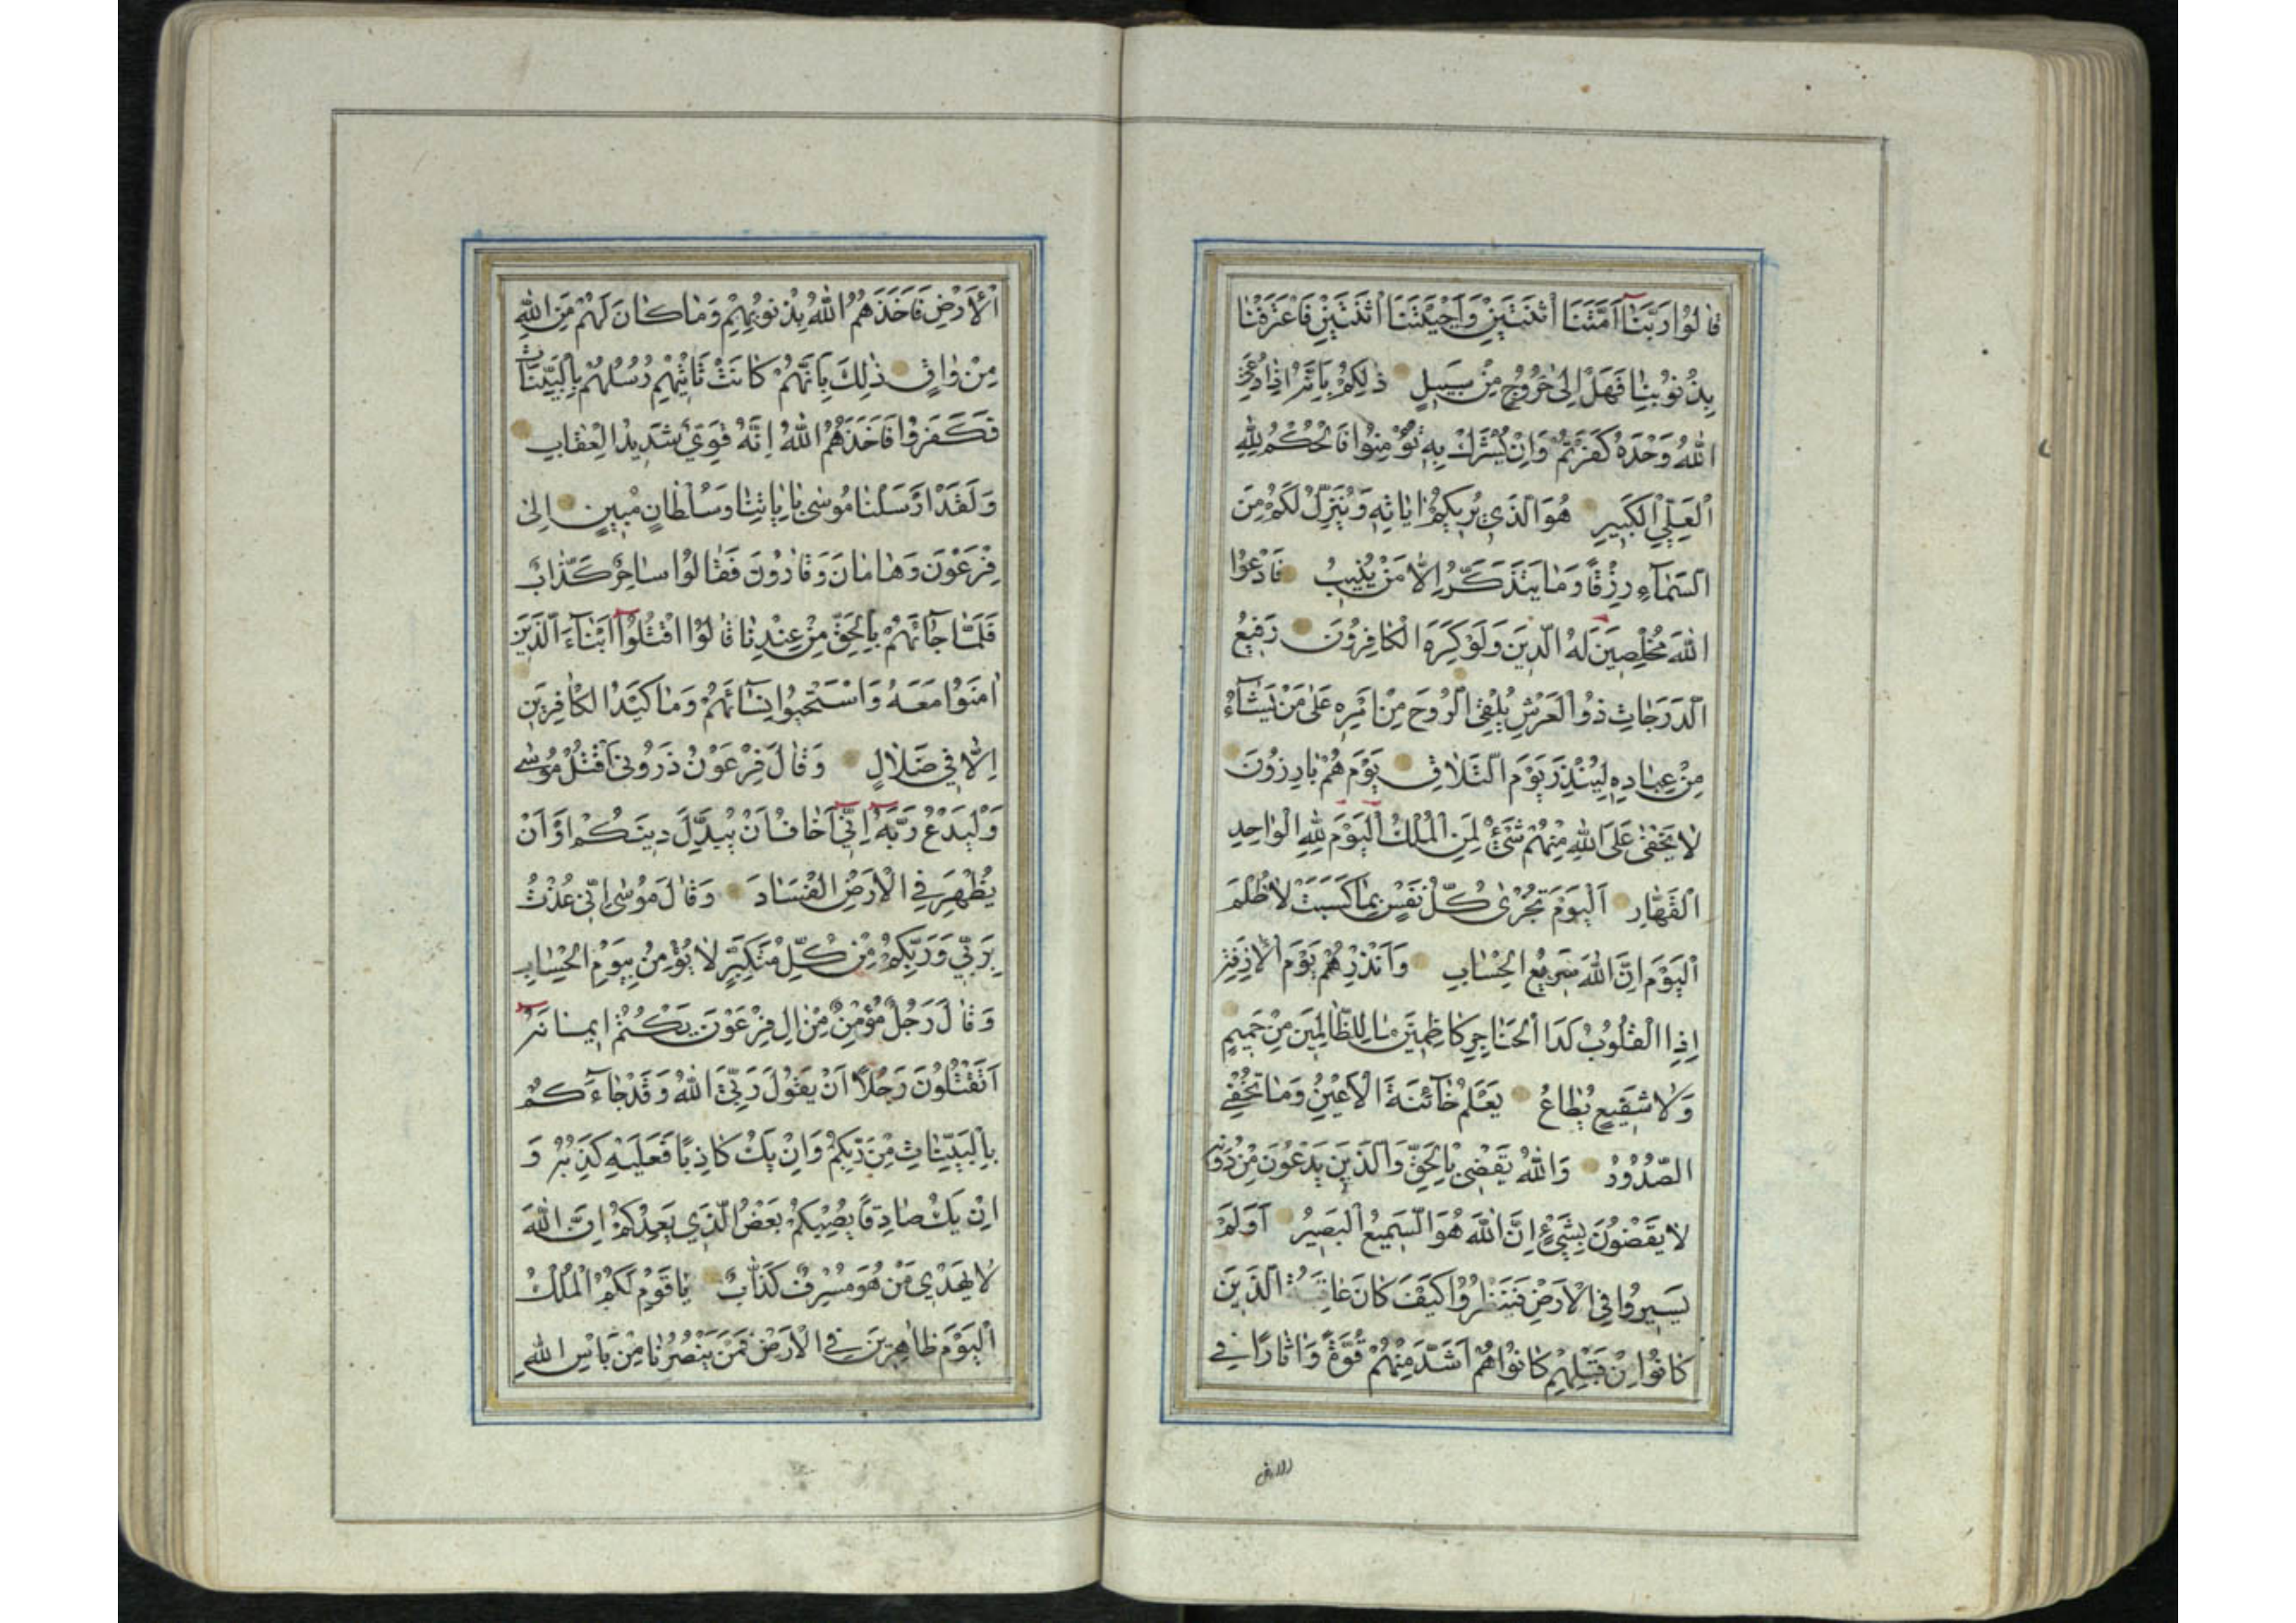 قَالُوا رَبَّنَآ اَمَتَّنَا اثْنَتَيْنِ وَاَحْيَيْتَنَا اثْنَتَيْنِ فَاعْتَرَفْنَا
بِذُنُوبِنَا فَهَلْ اِلىٰ خُرُوجٍ مِنْ سَبِيلٍ ذٰلِكُمْ بِاَنَّهُ اِذَا دُعِيَ
اللّٰهُ وَحْدَهُ كَفَرْتُمْ وَاِنْ يُشْرَكْ بِهِ تُؤْمِنُوا فَالْحُكْمُ لِلّٰهِ
الْعَلِيِّ الْكَبِيرِ هُوَ الَّذِي يُرِيكُمْ اٰيَاتِهِ وَيُنَزِّلُ لَكُمْ مِنَ
السَّمَآءِ رِزْقًا وَمَا يَتَذَكَّرُ اِلَّا مَنْ يُنِيبُ فَادْعُوا
اللّٰهَ مُخْلِصِينَ لَهُ الدِّينَ وَلَوْ كَرِهَ الْكَافِرُونَ رَفِيعُ
الدَّرَجَاتِ ذُو الْعَرْشِ يُلْقِي الرُّوحَ مِنْ اَمْرِهِ عَلىٰ مَنْ يَشَآءُ
مِنْ عِبَادِهِ لِيُنْذِرَ يَوْمَ التَّلَاقِ يَوْمَ هُمْ بَارِزُونَ
لَا يَخْفىٰ عَلَى اللّٰهِ مِنْهُمْ شَيْءٌ لِمَنِ الْمُلْكُ الْيَوْمَ لِلّٰهِ الْوَاحِدِ
الْقَهَّارِ اَلْيَوْمَ تُجْزىٰ كُلُّ نَفْسٍ بِمَا كَسَبَتْ لَا ظُلْمَ
الْيَوْمَ اِنَّ اللّٰهَ سَرِيعُ الْحِسَابِ وَاَنْذِرْهُمْ يَوْمَ الْاٰزِفَةِ
اِذِ الْقُلُوبُ لَدَا الْحَنَاجِرِ كَاظِمِينَ مَا لِلظَّالِمِينَ مِنْ حَمِيمٍ
وَلَا شَفِيعٍ يُطَاعُ يَعْلَمُ خَآئِنَةَ الْاَعْيُنِ وَمَا تُخْفِي
الصُّدُورُ وَاللّٰهُ يَقْضِي بِالْحَقِّ وَالَّذِينَ يَدْعُونَ مِنْ دُونِهِ
لَا يَقْضُونَ بِشَيْءٍ اِنَّ اللّٰهَ هُوَ السَّمِيعُ الْبَصِيرُ اَوَلَمْ
يَسِيرُوا فِي الْاَرْضِ فَيَنْظُرُوا كَيْفَ كَانَ عَاقِبَةُ الَّذِينَ
كَانُوا مِنْ قَبْلِهِمْ كَانُوا هُمْ اَشَدَّ مِنْهُمْ قُوَّةً وَاٰثَارًا فِي
الارض
الْاَرْضِ فَاَخَذَهُمُ اللّٰهُ بِذُنُوبِهِمْ وَمَا كَانَ لَهُمْ مِنَ اللّٰهِ
مِنْ وَاقٍ ذٰلِكَ بِاَنَّهُمْ كَانَتْ تَاْتِيهِمْ رُسُلُهُمْ بِالْبَيِّنَاتِ
فَكَفَرُوا فَاَخَذَهُمُ اللّٰهُ اِنَّهُ قَوِيٌّ شَدِيدُ الْعِقَابِ
وَلَقَدْ اَرْسَلْنَا مُوسىٰ بِاٰيَاتِنَا وَسُلْطَانٍ مُبِينٍ اِلىٰ
فِرْعَوْنَ وَهَامَانَ وَقَارُونَ فَقَالُوا سَاحِرٌ كَذَّابٌ
فَلَمَّا جَآئَهُمْ بِالْحَقِّ مِنْ عِنْدِنَا قَالُوا اقْتُلُوآ اَبْنَآءَ الَّذِينَ
اٰمَنُوا مَعَهُ وَاسْتَحْيُوا نِسَآئَهُمْ وَمَا كَيْدُ الْكَافِرِينَ
اِلَّا فِي ضَلَالٍ وَقَالَ فِرْعَوْنُ ذَرُونِي اَقْتُلْ مُوسىٰ
وَلْيَدْعُ رَبَّهُ اِنِّيٓ اَخَافُ اَنْ يُبَدِّلَ دِينَكُمْ اَوْ اَنْ
يُظْهِرَ فِي الْاَرْضِ الْفَسَادَ وَقَالَ مُوسىٰ اِنِّي عُذْتُ
بِرَبِّي وَرَبِّكُمْ مِنْ كُلِّ مُتَكَبِّرٍ لَا يُؤْمِنُ بِيَوْمِ الْحِسَابِ
وَقَالَ رَجُلٌ مُؤْمِنٌ مِنْ اٰلِ فِرْعَوْنَ يَكْتُمُ اِيمَانَهُ
اَتَقْتُلُونَ رَجُلًا اَنْ يَقُولَ رَبِّيَ اللّٰهُ وَقَدْ جَآءَكُمْ
بِالْبَيِّنَاتِ مِنْ رَبِّكُمْ وَاِنْ يَكُ كَاذِبًا فَعَلَيْهِ كَذِبُهُ وَ
اِنْ يَكُ صَادِقًا يُصِبْكُمْ بَعْضُ الَّذِي يَعِدُكُمْ اِنَّ اللّٰهَ
لَا يَهْدِي مَنْ هُوَ مُسْرِفٌ كَذَّابٌ يَا قَوْمِ لَكُمُ الْمُلْكُ
الْيَوْمَ ظَاهِرِينَ فِي الْاَرْضِ فَمَنْ يَنْصُرُنَا مِنْ بَاْسِ اللّٰهِ